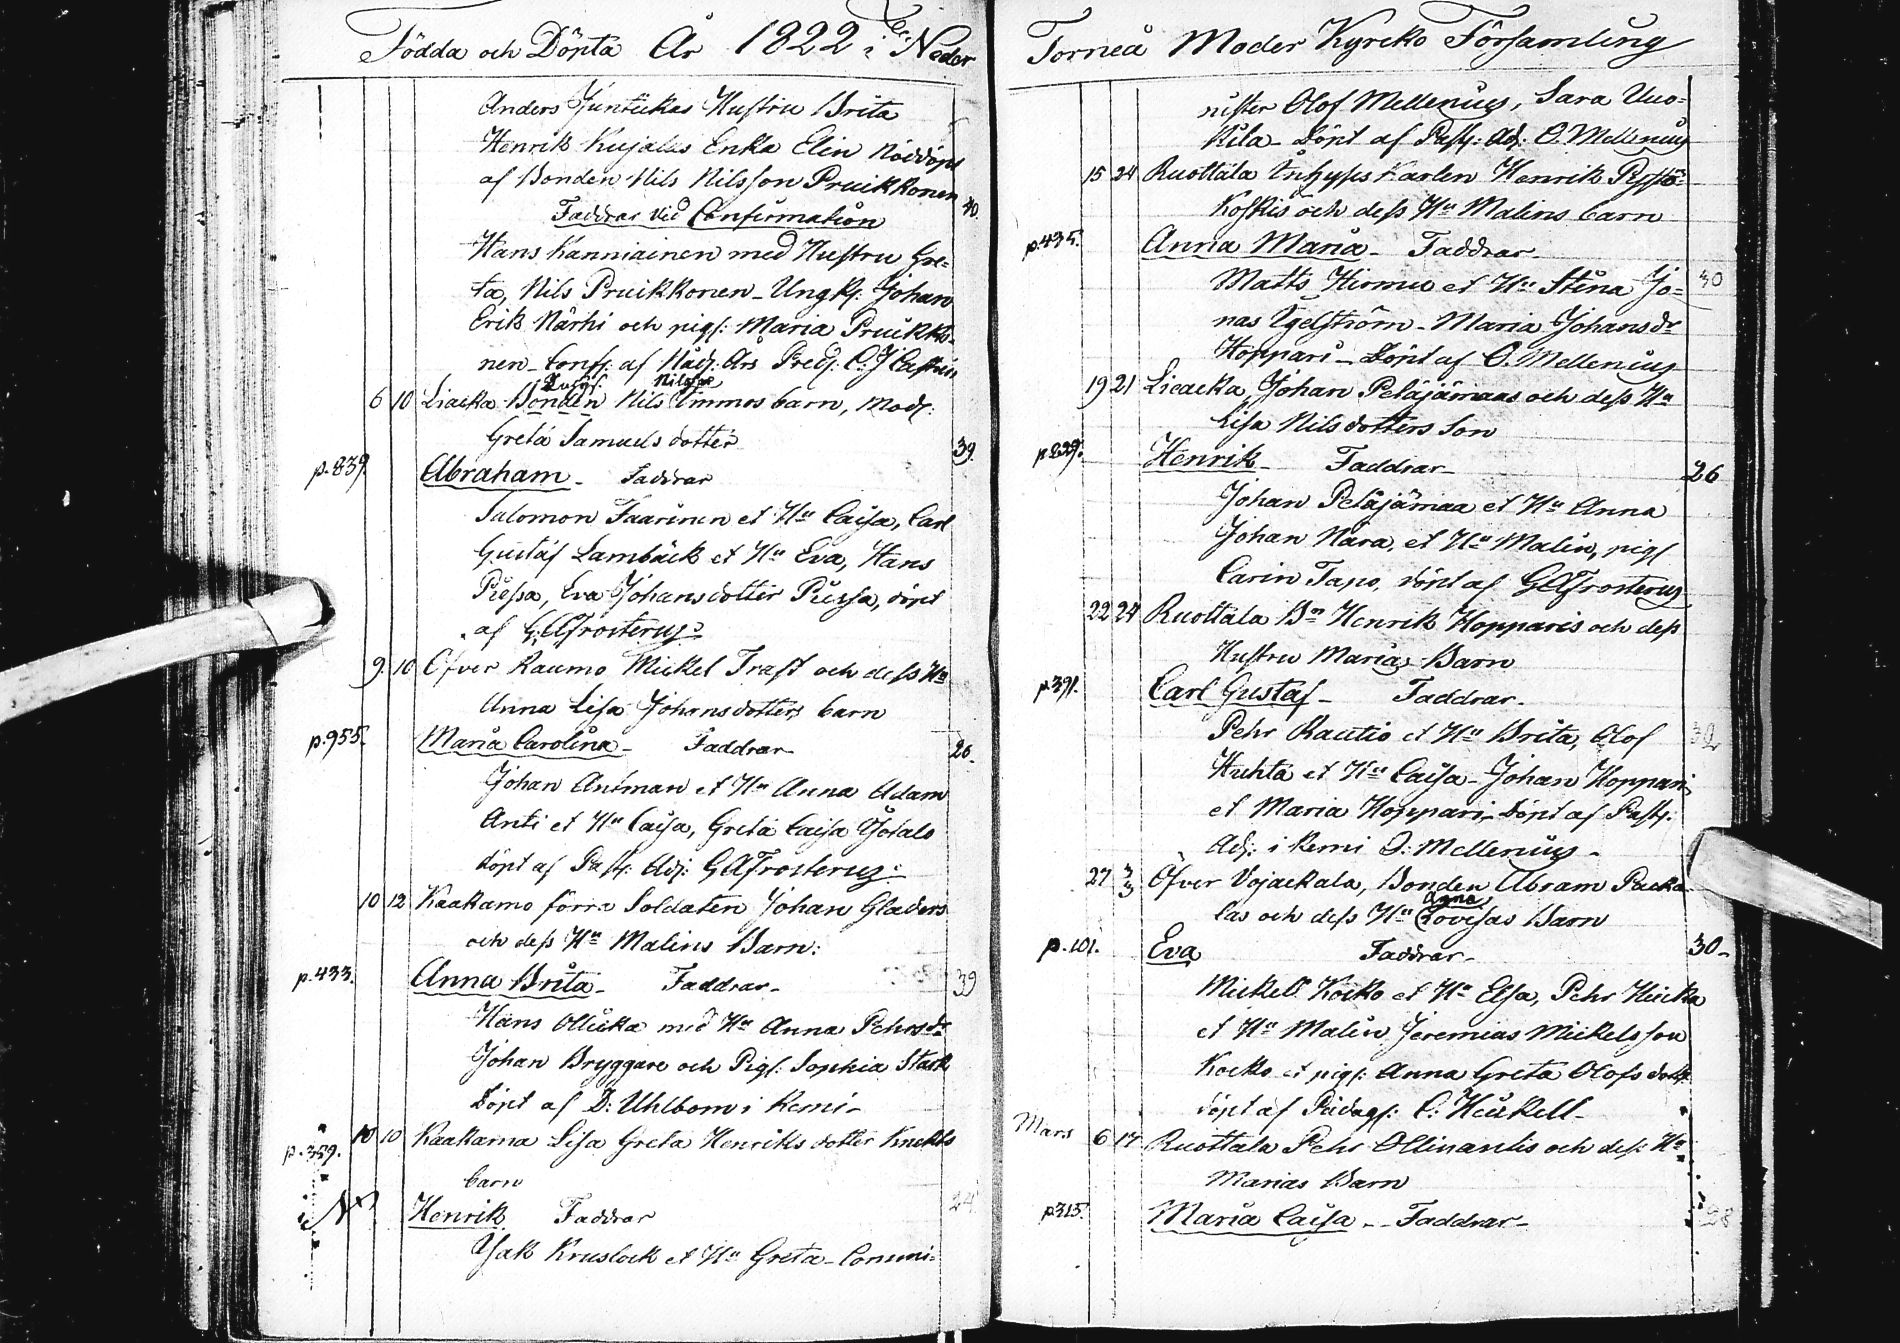 Födda och Döpta År 1822 i Neder
Anders Juntikas Hustru Brita
Henrik Kujalas Enka Elin Nöddöpt
af Bonden Nils Nilsson Pruikkonen
40.
Faddrar vid Confirmation
Hans Kanniainen med Hustru Gre-
ta, Nils Pruikkonen - Ungk: Johan
Erik Närhi och pig: Maria Pruikko-
nen - Conf: af Nåd: Års Pred: C: J Castrén
Nilsson
6 10 Liacka Bonden NilsImmos barn, Mod:
Greta Samuels dotter
39.
p. 839 Abraham - Faddrar
Salomon Faarinen et Hu Caisa, Carl
Gustaf Lambäck et Hu Eva, Hans
Piessa, Eva Johansdotter Piessa, döpt
af GAFrosterus
9. 10 Öfver Raumo Mickel Trast och dess Hu
Anna Lisa Johansdotters barn
p. 955. Maria Carolina - Faddrar 26.
Johan Antman et Hu Anna Adam
Anti et Hu Caisa, Greta Caisa
döpt af Past: Adj: GAFrosterus
10 12 Kaakamo förra Soldaten Johan Gladers
och dess Hu Malins Barn:
p. 433. Anna Brita - Faddrar - 39
Hans Ollicka med Hu Anna Pehrsdr
Johan Bryggare och Pig: Sophia Stark
Döpt af D: Uhlbom i Kemi -
p. 359. 10 10 Kaakama Lisa Greta Henriks dotter Knekts
barn
Henrik Faddrar 24
Isak Kruslock et Hu Greta - Commi-
Torneå Moder Kyrcko Församling
nister Olof Mellenius, Sara Uuo-
kila - Döpt af Past: Adj: O. Mellenius
15 24 Ruottala Inhyses Karlen Henrik
Koskis och dess Hu Malins barn
p. 435. Anna Maria - Faddrar -
Matts Hirmu et Hu Stina Jo- 30
nas Egelström - Maria Johansdr
Hoppari - Döpt af O. Mellenius
19 21 Lieacka, Johan Peläjämaas och dess Hu
Lisa Nilsdotters Son
p. 229. Henrik - Faddrar - 26
Johan Peläjämaa et Hu Anna
Johan Nara, et Hu Malin, pig
Carin Tapo, döpt af GAFrosterus
22 24 Ruottala Bn Henrik Hopparis och dess
Hustru Marias Barn
p. 391. Carl Gustaf - Faddrar -
Pehr Rautio et Hu Brita, Olof 32
Huhta et Hu Caisa - Johan Hoppari
et Maria Hoppari - döpt af Past:
Adj: i Kemi O: Mellenius -
27 3/3 Öfver Vojackala, Bonden Abram Packa
Anna
las och dess Hu Lovisas Barn
p. 101. Eva Faddrar - 30 -
Mickel Kocko et Hu Elsa, Pehr Hicka
et Hu Malin Jeremias Mickelsson
Kocko et pig: Anna Greta Olofs dott:
döpt af Pædag: C: Heikell -
Mars 6 17 Ruottala Pehr Ollinantis och dess Hu
Marias Barn
p. 315. Maria Caisa - - Faddrar - 28